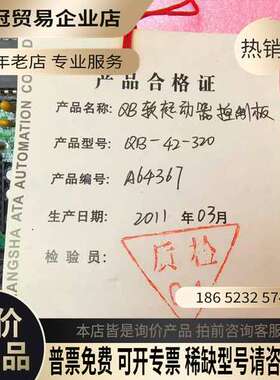 冠贸易企业店
年老店 专业可靠
热销
产品合格证
产品名称: QB软起动器控制板
产品型号: QB-42-320
产品编号: A64367
生产日期: 2011 年 03月
检验员:
质检
ANGSHA ATA AUTOMATION CO
186 5232 574
价
品
本店皆是询价产品 拍前咨询客
普票免费 可开专票 稀缺型号请咨